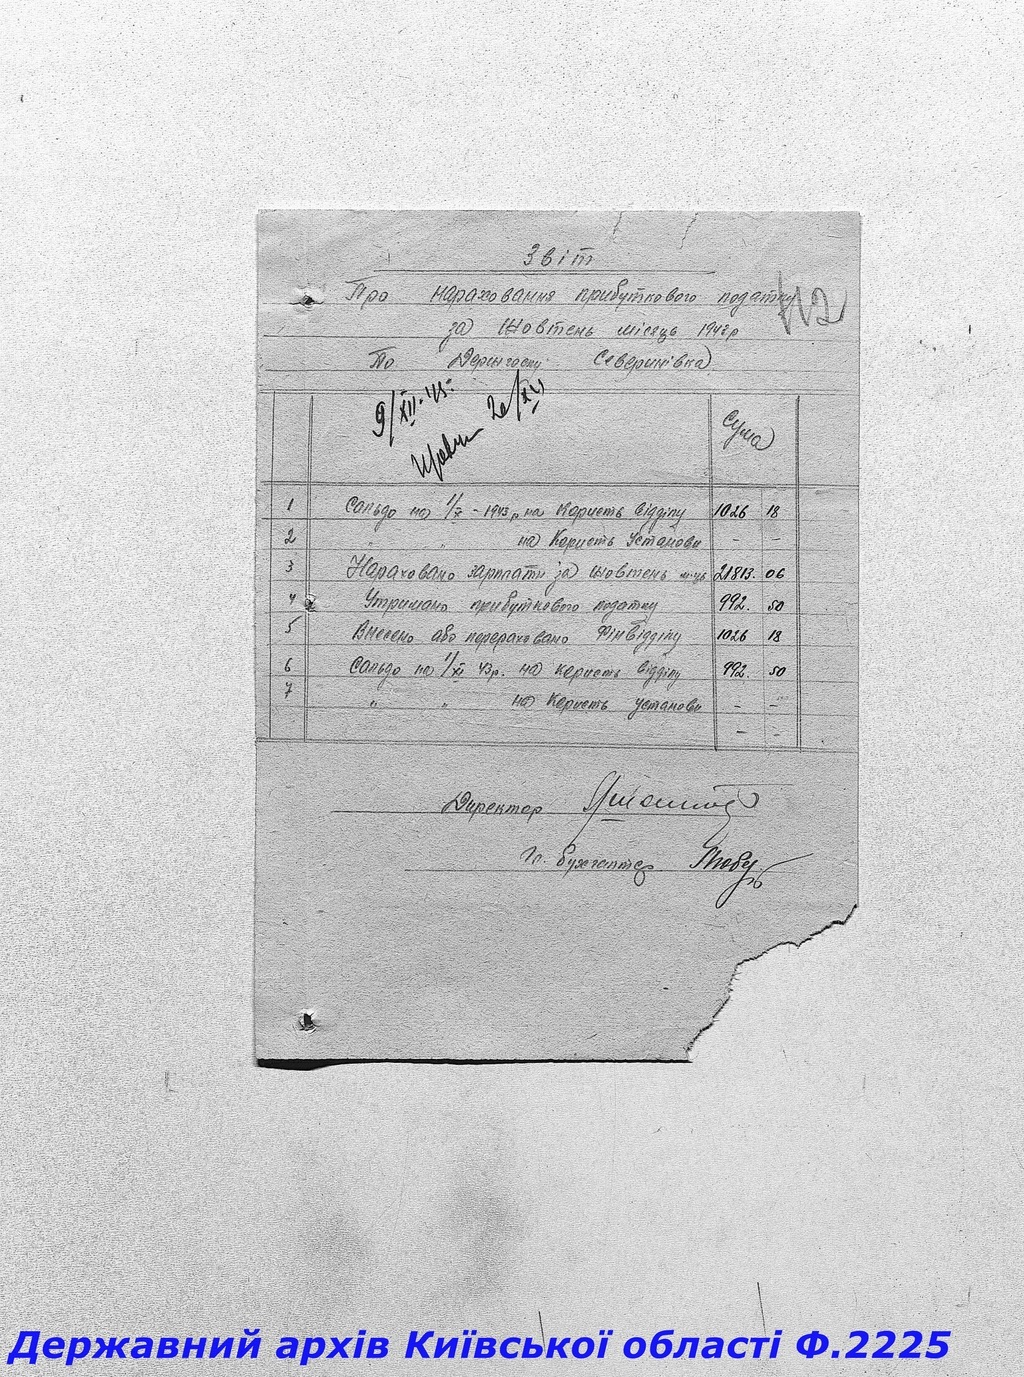 Звіт
Про нараховання прибуткового податку
112
за жовтень місяць 194 р
По Держгоспу Северинівка
9/XII-43.
Сума
1 Сальдо на 1/X - 1943 р. на користь відділу 1026 18
2 " " на користь установи - -
3 Нараховано зарплати за жовтень м-ць 21813. 06
4 Утримано прибуткового податку 992. 50
5 Внесено або перераховано Фінвідділу 1026 18
6 Сальдо на 1/XI 43р. на користь відділу 992. 50
7 " " на користь установи - -
- -
Директор
Гл. бухгалтер
Державний архів Київської області Ф.2225